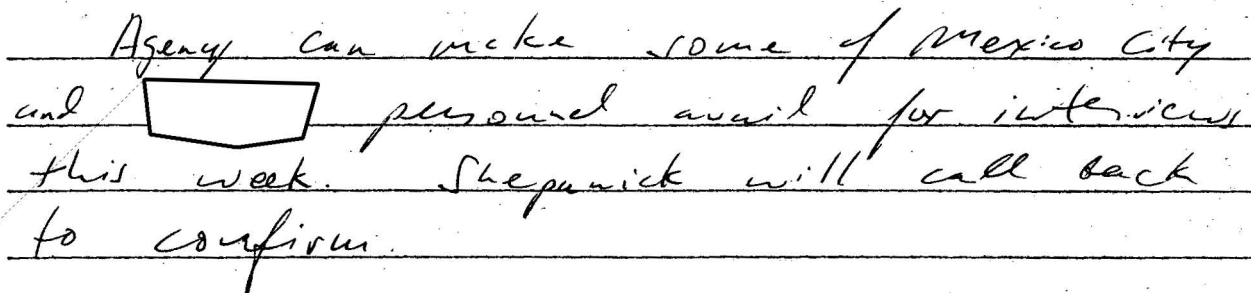 Agency can make some of Mexico City
and personnel avail for interviews
this week. Shepanick will call back
to confirm.